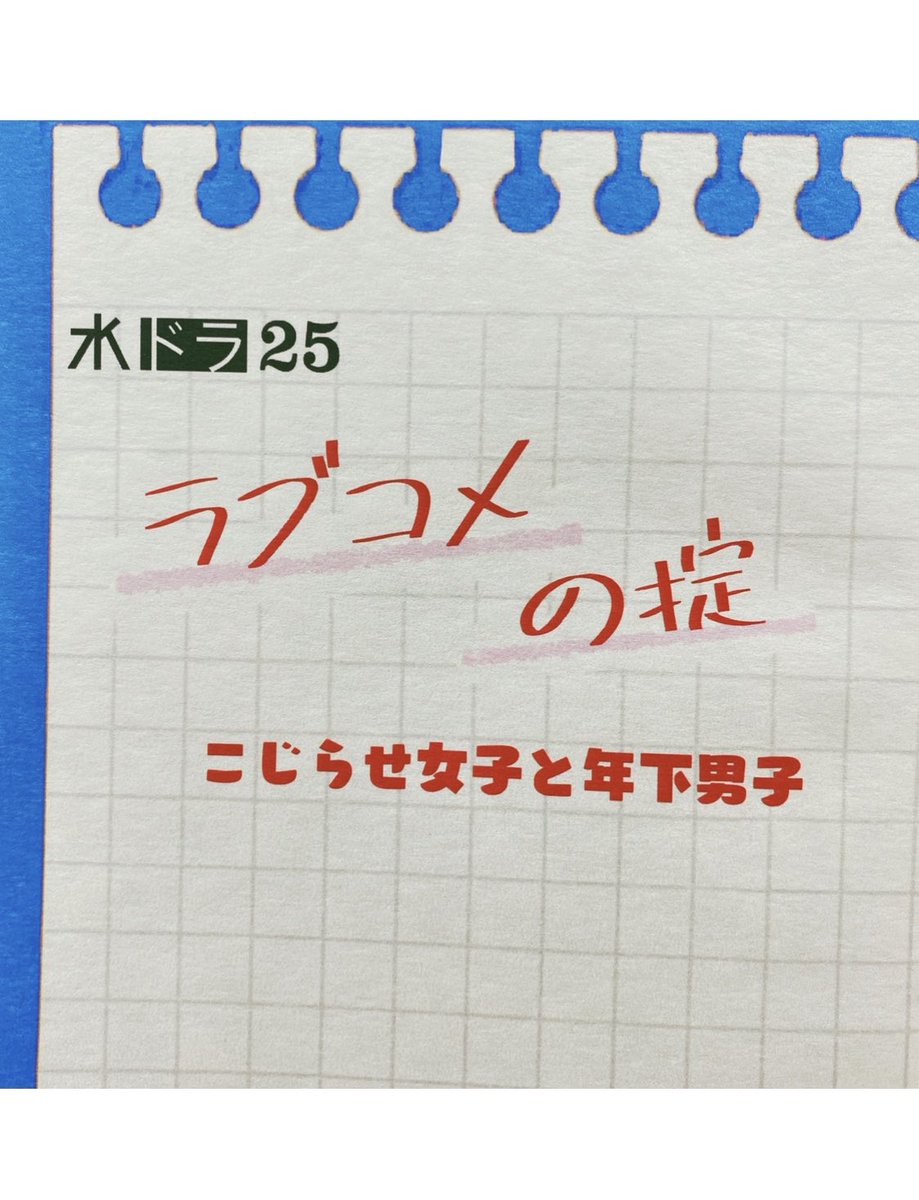 水ドラ25
ラブコメ
の掟
こじらせ女子と年下男子